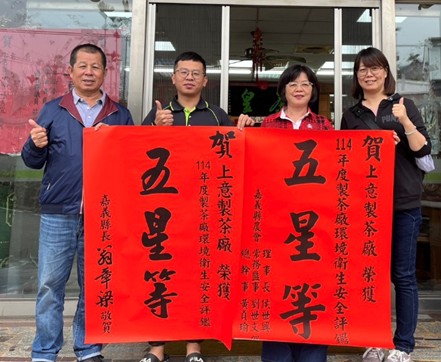 賀上意製茶廠 榮獲
114年度製茶廠環境衛生安全評鑑
五星等
嘉義縣長 翁章梁 敬賀
賀上意製茶廠 榮獲
114年度製茶廠環境衛生安全評鑑
五星等
嘉義縣農會
理事長
常務監事
總幹事 黃貞瑜